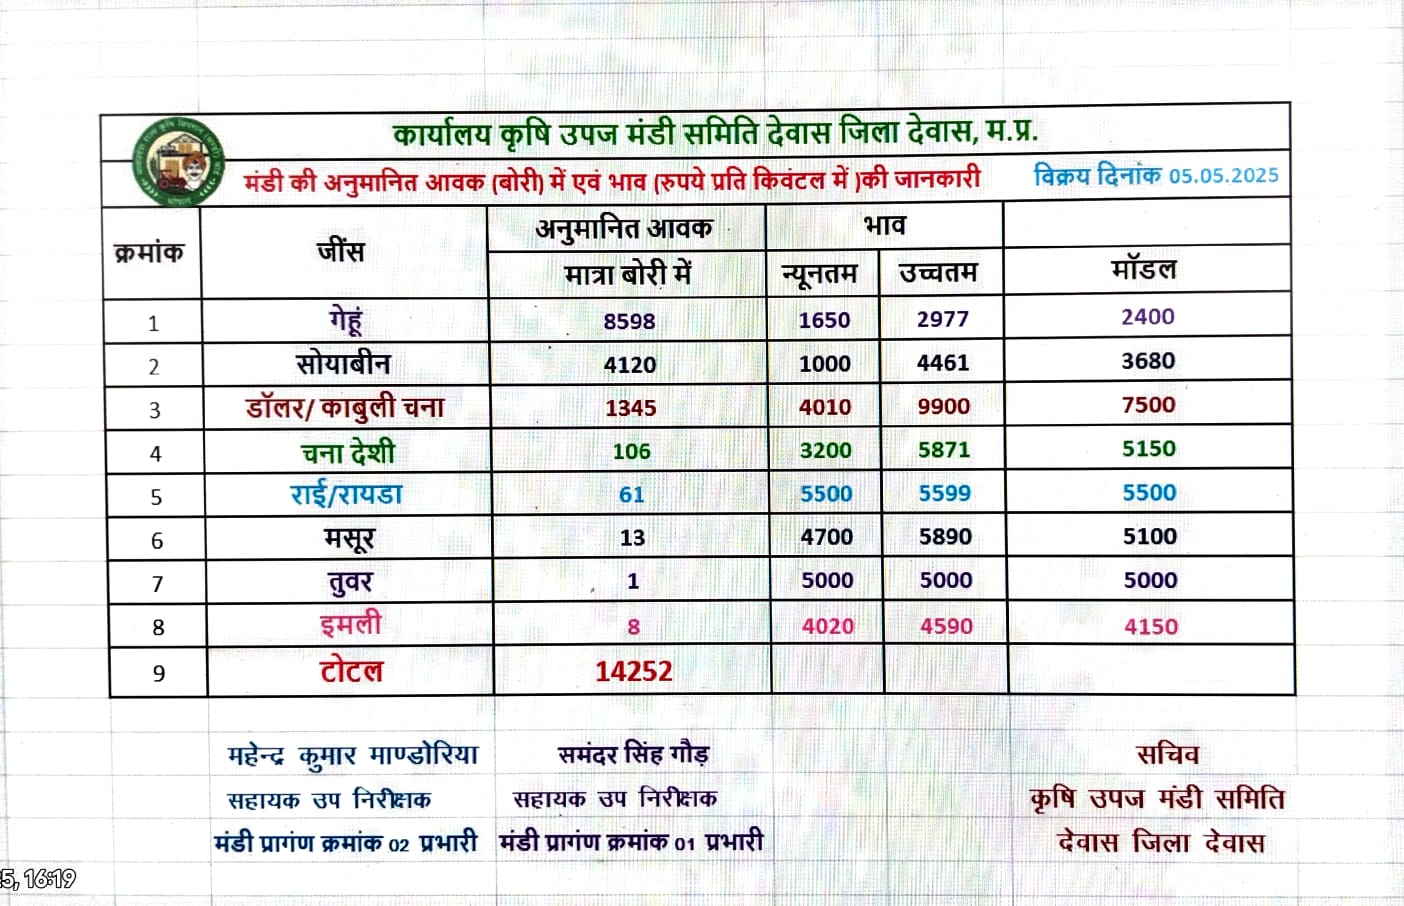 कार्यालय कृषि उपज मंडी समिति देवास जिला देवास, म.प्र.
मंडी की अनुमानित आवक (बोरी) में एवं भाव (रुपये प्रति किवंटल में )की जानकारी विक्रय दिनांक 05.05.2025
क्रमांक जींस अनुमानित आवक भाव
मात्रा बोरी में न्यूनतम उच्चतम मॉडल
1 गेहूं 8598 1650 2977 2400
2 सोयाबीन 4120 1000 4461 3680
3 डॉलर/ काबुली चना 1345 4010 9900 7500
4 चना देशी 106 3200 5871 5150
5 राई/रायडा 61 5500 5599 5500
6 मसूर 13 4700 5890 5100
7 तुवर 1 5000 5000 5000
8 इमली 8 4020 4590 4150
9 टोटल 14252
महेन्द्र कुमार माण्डोरिया समंदर सिंह गौड़ सचिव
सहायक उप निरीक्षक सहायक उप निरीक्षक कृषि उपज मंडी समिति
मंडी प्रागंण क्रमांक 02 प्रभारी मंडी प्रागंण क्रमांक 01 प्रभारी देवास जिला देवास
5, 16:19